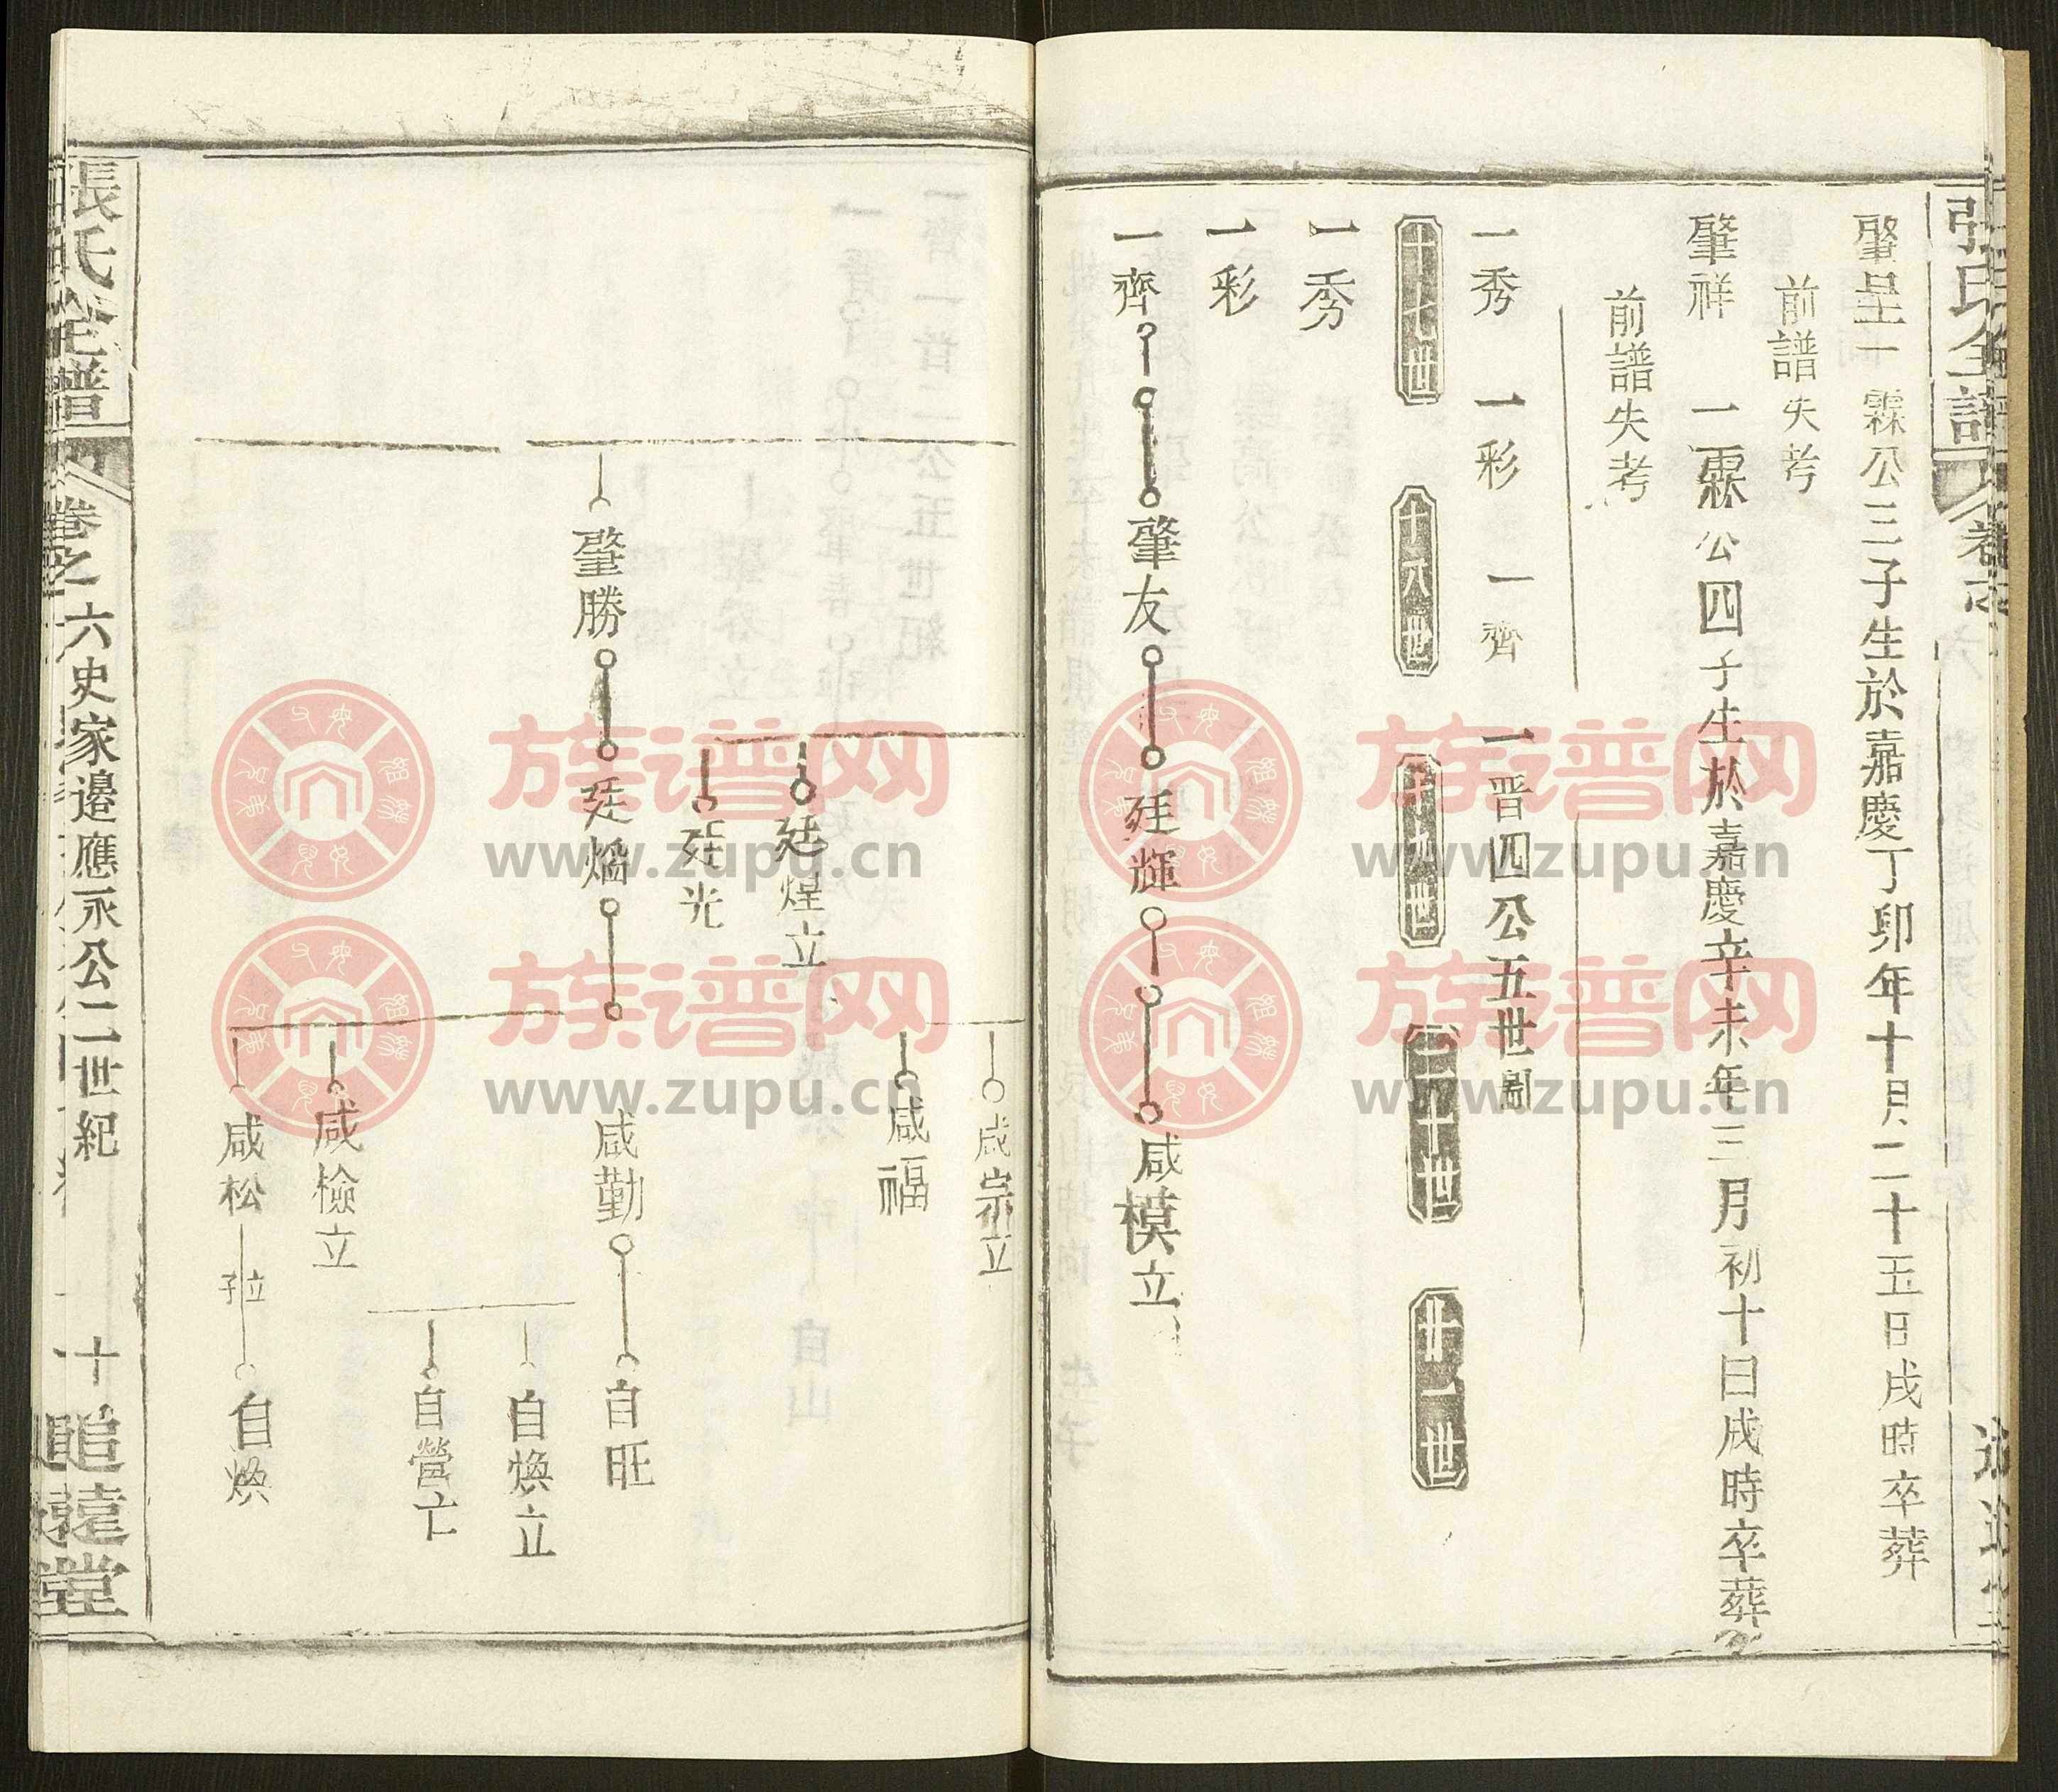 張氏全譜
肇呈一霖公三子生於嘉慶丁卯年十月二十五日戌時卒葬
前譜失考
肇祥 一霖公四子生於嘉慶辛未年三月初十日戌時卒葬
前譜失考
一秀 一彩 一齊 一晋四公五世圖
十七世 十八世 十九世 二十世 廿一世
一秀
一彩
一齊 肇友 廷輝 咸模立
咸宗立
咸福
廷煌立
廷光
肇勝 廷焰 咸勤 自旺
自煥立
自營亡
咸檢立
咸松 自煥
張氏全譜 卷之六史家邊應永公二世紀 十 追遠堂
族谱网
www.zupu.cn
族谱网
www.zupu.cn
族谱网
www.zupu.cn
族谱网
www.zupu.cn